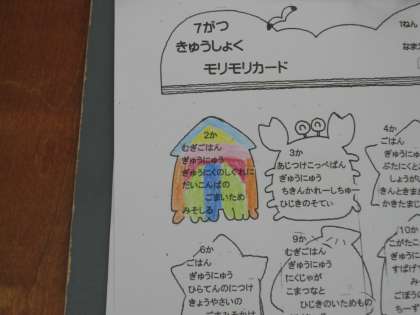 7がつ
きゅうしょく
モリモリカード
1ねん
なまえ
2か
むぎごはん
ぎゅうにゅう
ぎゅうにくのしぐれに
だいこんばの
ごまいため
みそしる
3か
あじつけこっぺぱん
ぎゅうにゅう
ちきんかれーしちゅー
ひじきのそてぃ
4か
ごはん
ぎゅうにゅ
ぶたにくと
しょうが
きんときま
かきたまじ
6か
ごはん
ぎゅうにゅう
ひらてんのにつけ
きょうやさいの
9か
むぎごはん
ぎゅうにゅう
にくじゃが
こまつなと
ひじきのいためもの
10か
こがたこ
ぎゅうにゅ
すぱげ